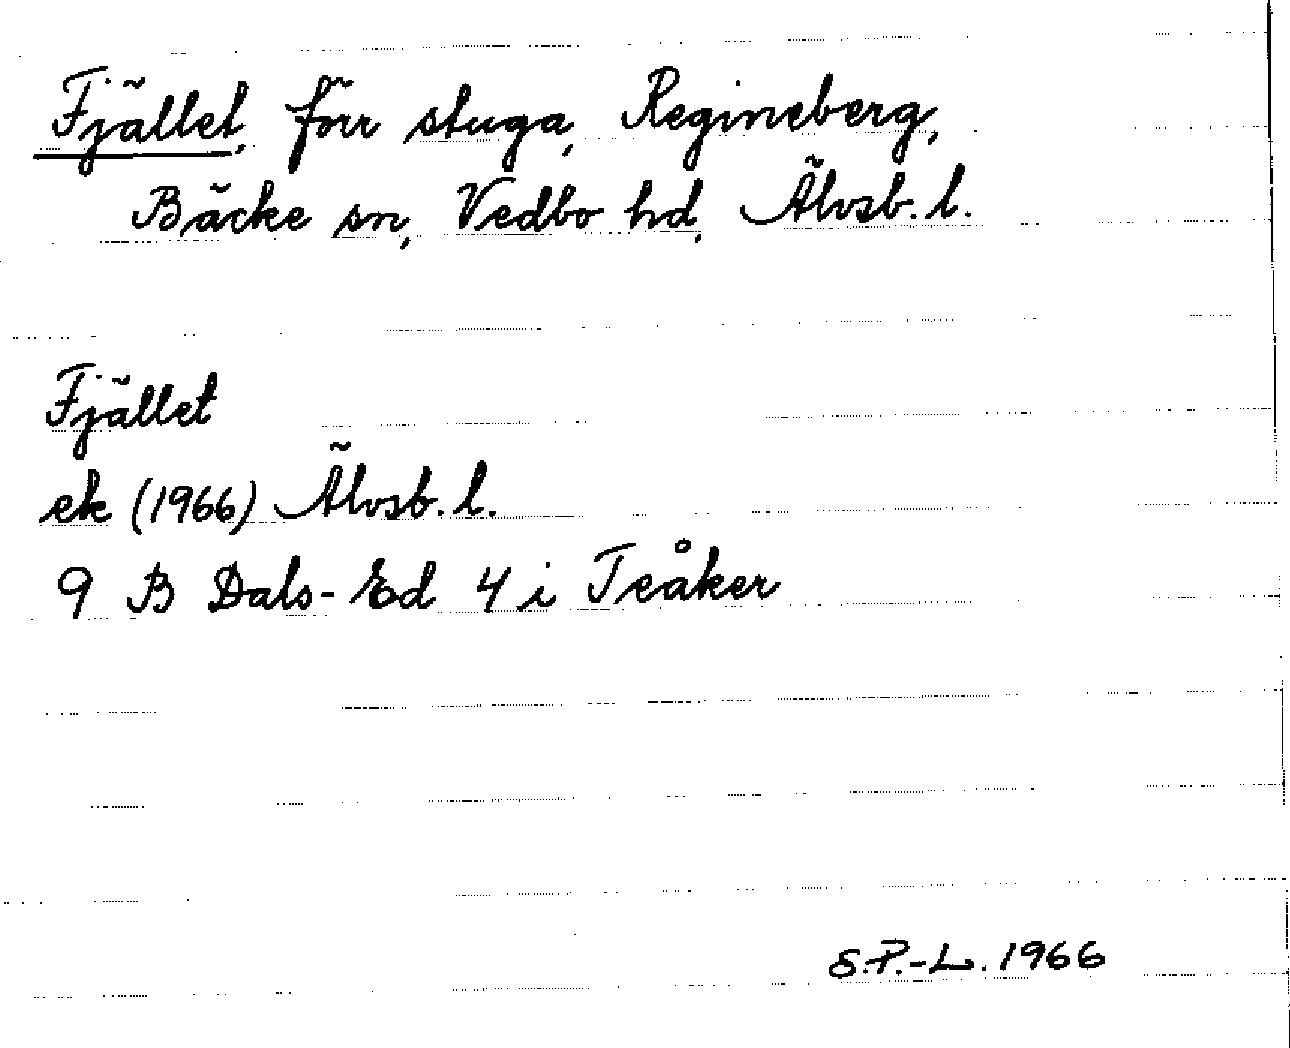 Fjället, förr stuga, Regineberg,
Bäcke sn, Vedbo hd, Älvsb. l.
Fjället
ek (1966) Älvsb. l.
9 B Dals-Ed 4 i Teåker
S.P.-L. 1966